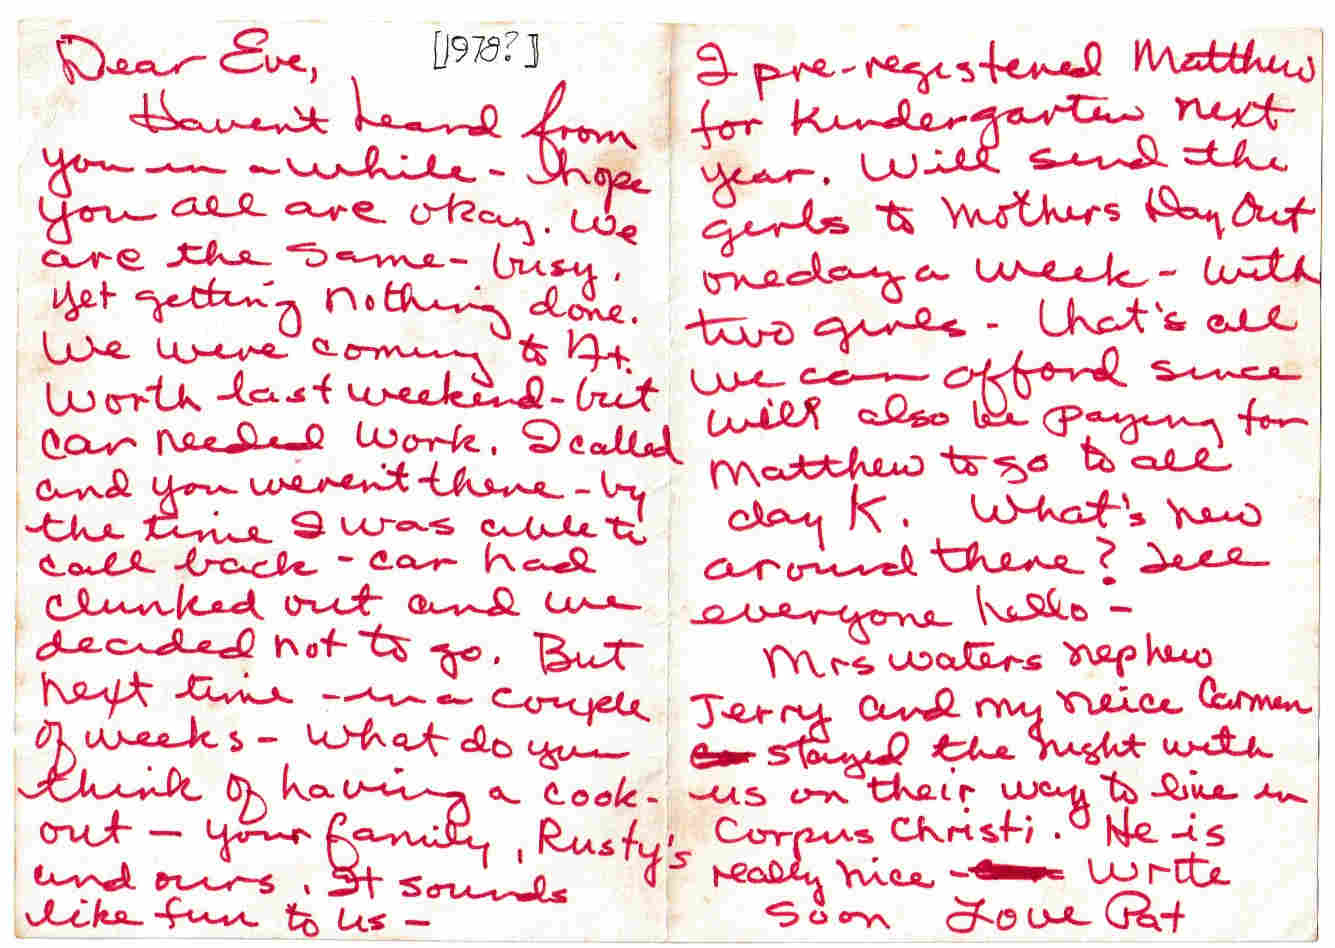 Dear Eve,
[1978?]
Haven't heard from
you in a while - hope
you all are okay. We
are the same - busy,
yet getting nothing done.
We were coming to Ft.
Worth last weekend - but
car needed work. I called
and you weren't there - by
the time I was able to
call back - car had
clunked out and we
decided not to go. But
next time - in a couple
of weeks - what do you
think of having a cook-
out - your family, Rusty's
and ours. It sounds
like fun to us -
I pre-registered Matthew
for Kindergarten next
year. Will send the
girls to Mothers Day Out
one day a week - with
two girls - that's all
we can afford since
will also be paying for
Matthew to go to all
day K. What's new
around there? Tell
everyone hello -
Mrs Waters nephew
Jerry and my neice Carmen
stayed the night with
us on their way to live in
Corpus Christi. He is
really nice - Write
Soon Love Pat